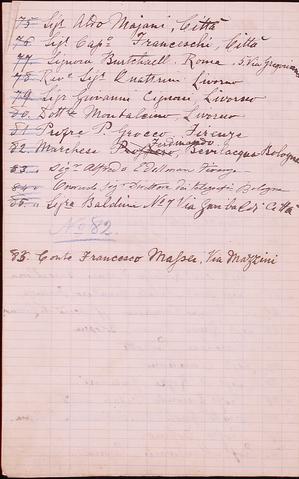 75 Sigr Aldo Majani, Città
76. Sigr Capo Franceschi, Città
77 Signora Burtchaell. Roma. 5. Via Gregoriana
78 Revo Sigr Quattrini Livorno
79 Sigr Giovanni Cignoni, Livorno
80. Dottr Montalcino, Livorno
81. Profre P. Grocco, Firenze
Ferdinando
82. Marchese Prospero, Bevilacqua Bologna
83. Sigr Alfredo Firenze
84. Sigr Bologna
85. Sigra Baldini No 7 Via Garibaldi Città
No 82.
83. Conte Francesco Massei, Via Mazzini